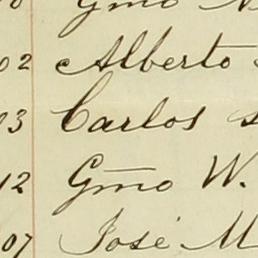 Gmo
02 Alberto
03 Carlos
12 Gmo W.
07 José M